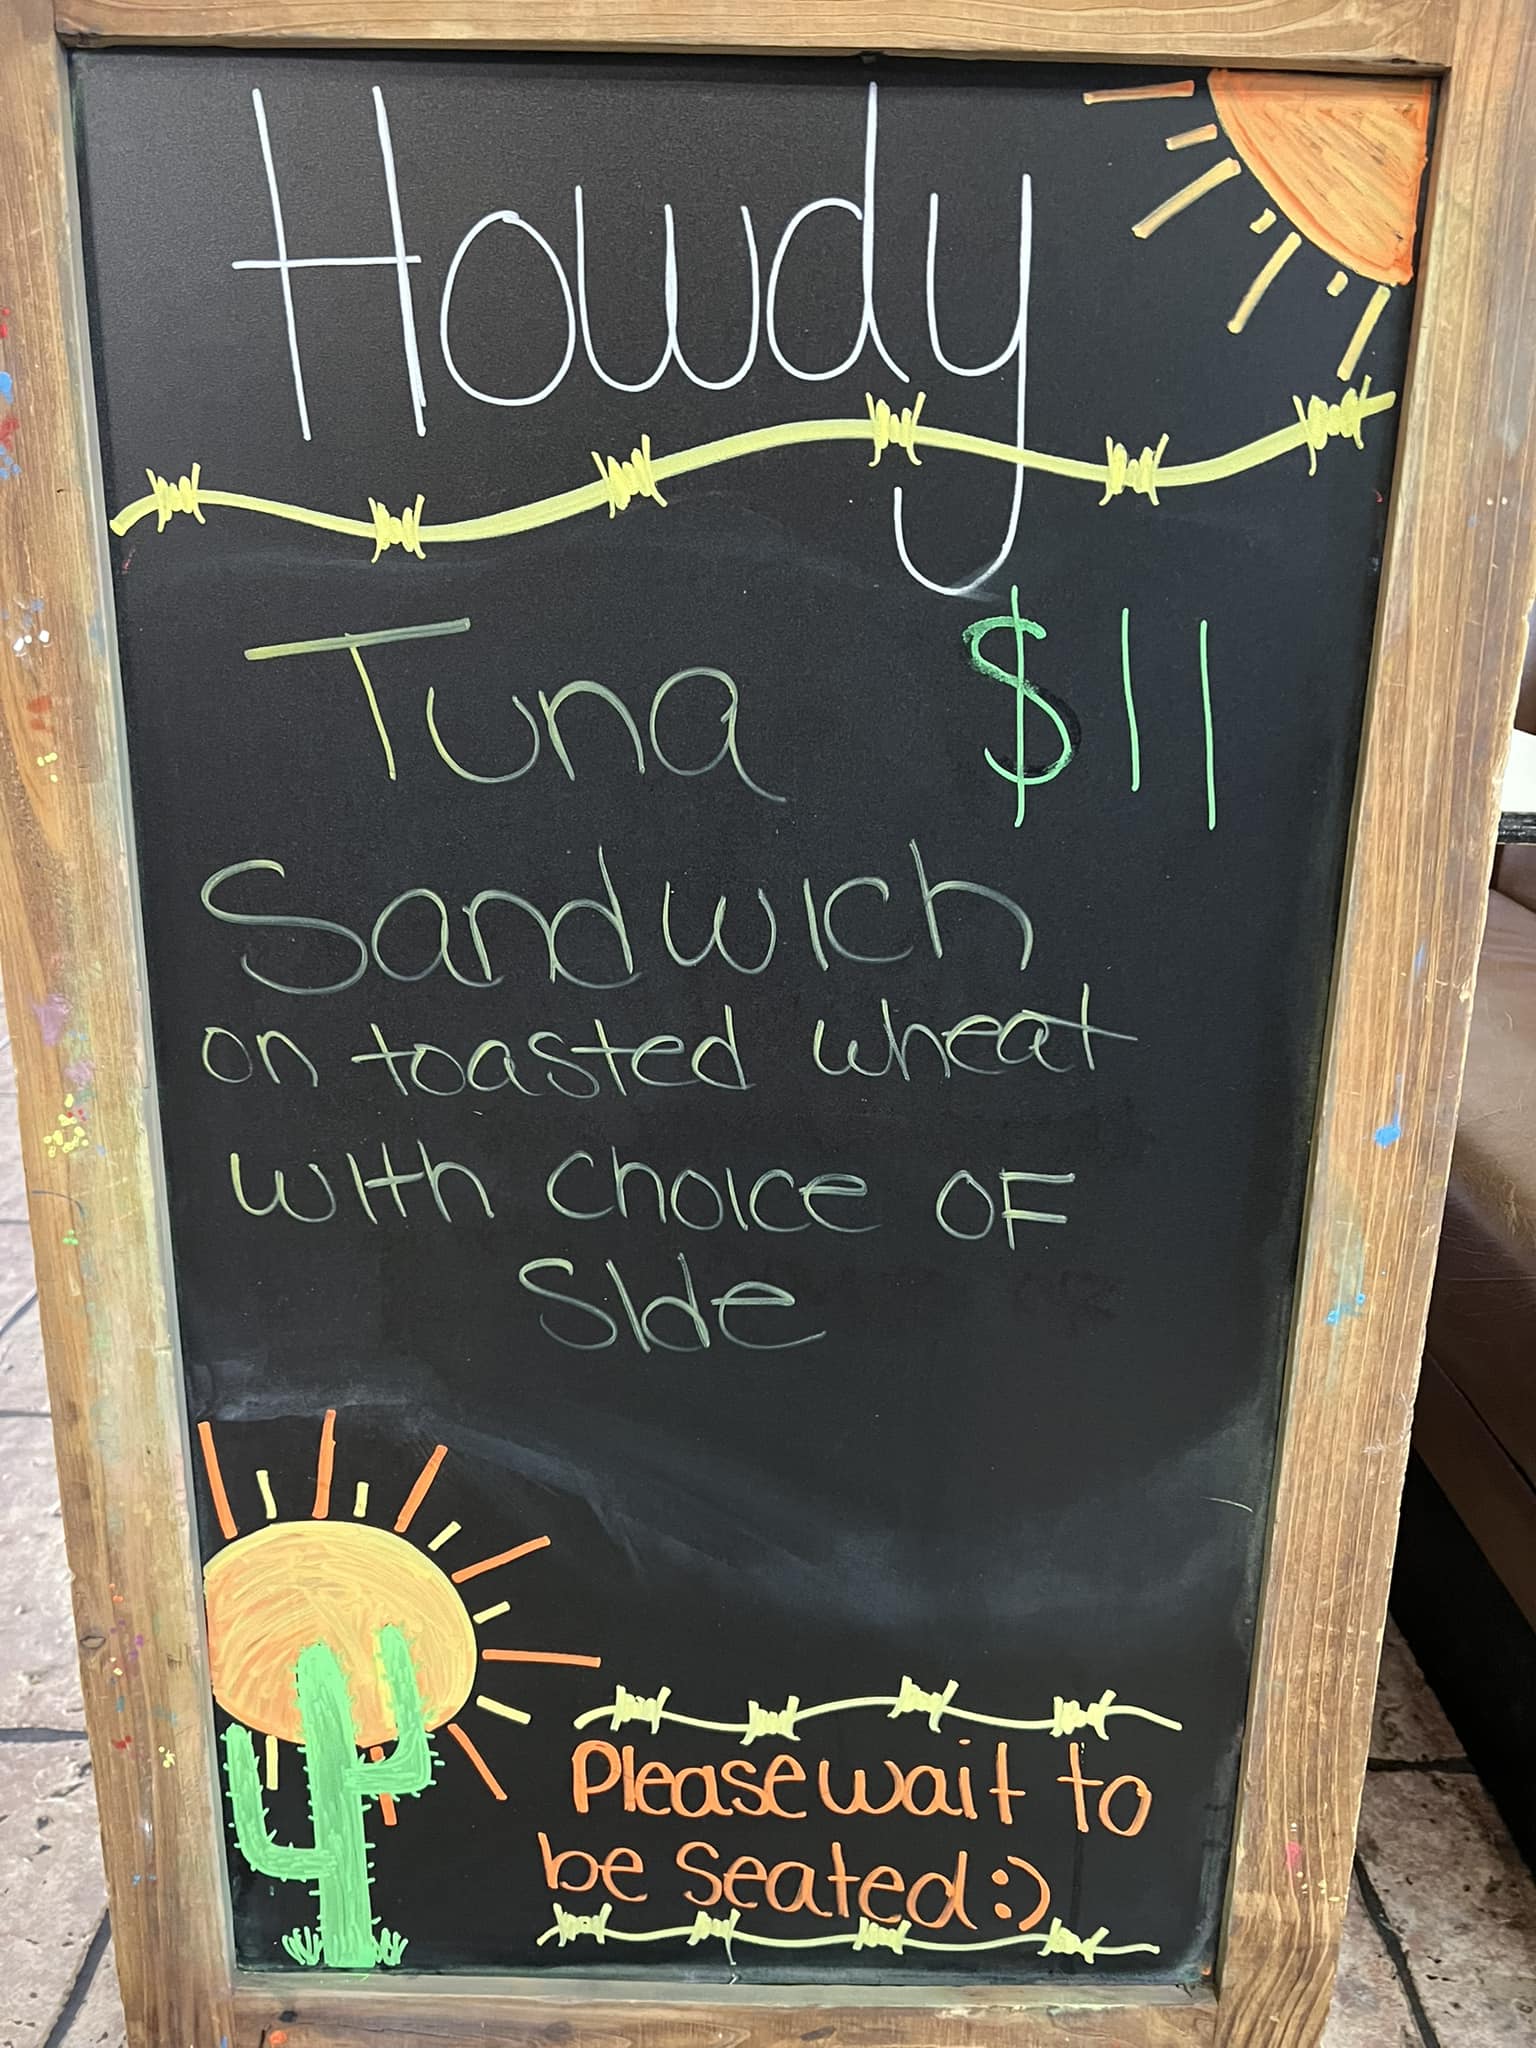 Howdy
Tuna $11
Sandwich
on toasted wheat
with choice of
Side
Please wait to
be seated :)